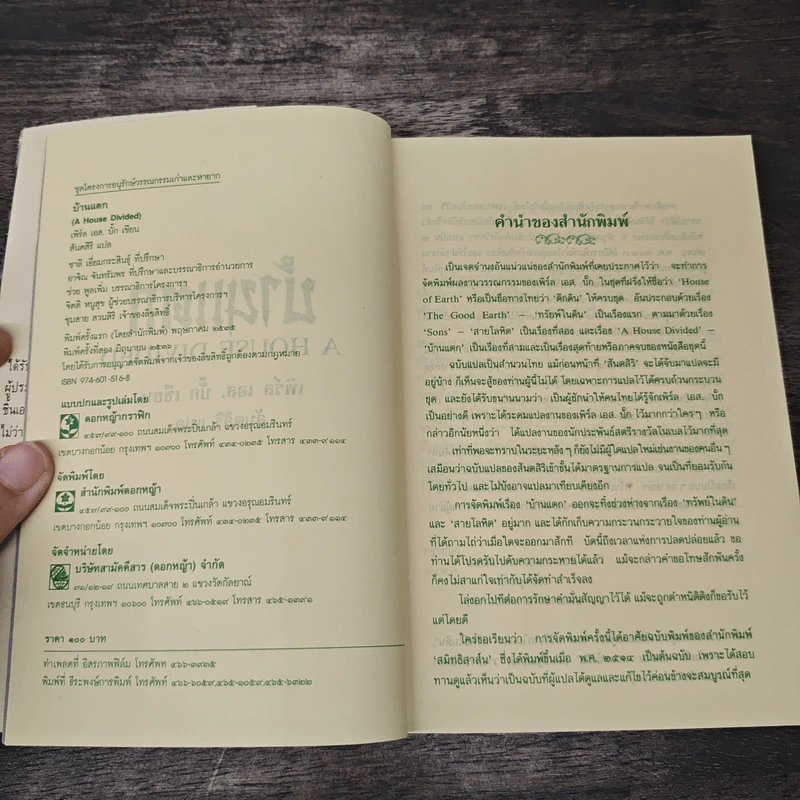 ชุดโครงการอนุรักษ์วรรณกรรมเก่าและหายาก
บ้านแตก
(A House Divided)
เพิร์ล เอส. บั๊ก เขียน
สันตสิริ แปล
ชาลี เอี่ยมกระสินธุ์ ที่ปรึกษา
อาจิณ จันทรัมพร ที่ปรึกษาและบรรณาธิการอำนวยการ
ช่วย พูลเพิ่ม บรรณาธิการโครงการฯ
จิตติ หนูสุข ผู้ช่วยบรรณาธิการบริหารโครงการฯ
ชุมสาย สวนสิริ เจ้าของลิขสิทธิ์
พิมพ์ครั้งแรก (โดยสำนักพิมพ์) พฤษภาคม ๒๕๓๕
พิมพ์ครั้งที่สอง มิถุนายน
ได้รับการอนุญาตจัดพิมพ์จากเจ้าของลิขสิทธิ์ถูกต้องตามกฎหมาย
ISBN 974-601-516-8
แบบปกและรูปเล่มโดย
ดอกหญ้ากราฟิก
๔๕๗/๙๙-๑๐๐ ถนนสมเด็จพระปิ่นเกล้า แขวงอรุณอมรินทร์
เขตบางกอกน้อย กรุงเทพฯ ๑๐๗๐๐ โทรศัพท์ ๔๓๔-๐๒๓๕ โทรสาร ๔๓๓-๙๑๑๔
จัดพิมพ์โดย
สำนักพิมพ์ดอกหญ้า
๔๕๗/๙๙-๑๐๐ ถนนสมเด็จพระปิ่นเกล้า แขวงอรุณอมรินทร์
เขตบางกอกน้อย กรุงเทพฯ ๑๐๗๐๐ โทรศัพท์ ๔๓๔-๐๒๓๕ โทรสาร ๔๓๓-๙๑๑๔
จัดจำหน่ายโดย
บริษัทสามัคคีสาร (ดอกหญ้า) จำกัด
๓๑/๑๒-๑๙ ถนนเทศบาลสาย ๒ แขวงวัดกัลยาณ์
เขตธนบุรี กรุงเทพฯ ๑๐๖๐๐ โทรศัพท์ ๔๖๖-๐๕๑๙ โทรสาร ๔๖๕-๑๓๙๑
ราคา ๑๐๐ บาท
ทำเพลตที่ อิสรภาพฟิล์ม โทรศัพท์ ๔๖๖-๓๙๓๕
พิมพ์ที่ ธีระพงษ์การพิมพ์ โทรศัพท์ ๔๖๖-๖๐๕๙,๔๖๕-๑๐๕๙,๔๖๕-๖๓๒๒
คำนำของสำนักพิมพ์
เป็นเจตจำนงอันแน่วแน่ของสำนักพิมพ์ที่เคยประกาศไว้ว่า จะทำการ
จัดพิมพ์ผลงานวรรณกรรมของเพิร์ล เอส. บั๊ก ในชุดที่ฝรั่งให้ชื่อว่า 'House
of Earth' หรือเป็นชื่อทางไทยว่า 'ตึกดิน' ให้ครบชุด อันประกอบด้วยเรื่อง
'The Good Earth' – 'ทรัพย์ในดิน' เป็นเรื่องแรก ตามมาด้วยเรื่อง
'Sons' – 'สายโลหิต' เป็นเรื่องที่สอง และเรื่อง 'A House Divided' –
'บ้านแตก' เป็นเรื่องที่สามและเป็นเรื่องสุดท้ายหรือภาคจบของหนังสือชุดนี้
ฉบับแปลเป็นสำนวนไทย แม้ก่อนหน้าที่ 'สันตสิริ' จะได้จับมาแปลจะมี
อยู่บ้าง ก็เห็นจะสู้ของท่านผู้นี้ไม่ได้ โดยเฉพาะการแปลไว้ได้ครบถ้วนกระบวน
ชุด และยังได้รับขนานนามว่า เป็นผู้ชักนำให้คนไทยได้รู้จักเพิร์ล เอส. บั๊ก
เป็นอย่างดี เพราะได้ระดมแปลงานของเพิร์ล เอส. บั๊ก ไว้มากกว่าใครๆ หรือ
กล่าวอีกนัยหนึ่งว่า ได้แปลงานของนักประพันธ์สตรีรางวัลโนเบลไว้มากที่สุด
เท่าที่พอจะทราบในระยะหลังๆ ก็ยังไม่มีผู้ใดแปลใหม่เช่นงานของคนอื่นๆ
เสมือนว่าฉบับแปลของสันตสิริเข้าขั้นได้มาตรฐานการแปล จนเป็นที่ยอมรับกัน
โดยทั่วไป และไม่บังอาจแปลมาเทียบเคียงอีก
การจัดพิมพ์เรื่อง 'บ้านแตก' ออกจะทิ้งช่วงห่างจากเรื่อง 'ทรัพย์ในดิน'
และ 'สายโลหิต' อยู่มาก และได้กักเก็บความกระวนกระวายใจของท่านผู้อ่าน
ที่ได้ถามไถ่ว่าเมื่อใดจะออกมาสักที บัดนี้ถึงเวลาแห่งการปลดปล่อยแล้ว ขอ
ท่านได้โปรดรับไปดับความกระหายได้แล้ว แม้จะกล่าวคำขอโทษสักพันครั้ง
ก็คงไม่สาแก่ใจเท่ากับได้จัดทำสำเร็จลง
โล่งอกไปทีต่อการรักษาคำมั่นสัญญาไว้ได้ แม้จะถูกตำหนิติติงก็ขอรับไว้
แต่โดยดี
ใคร่ขอเรียนว่า การจัดพิมพ์ครั้งนี้ได้อาศัยฉบับพิมพ์ของสำนักพิมพ์
'สมิทธิสาส์น' ซึ่งได้พิมพ์ขึ้นเมื่อ พ.ศ. ๒๕๑๔ เป็นต้นฉบับ เพราะได้สอบ
ทานดูแล้วเห็นว่าเป็นฉบับที่ผู้แปลได้ดูแลและแก้ไขไว้ค่อนข้างจะสมบูรณ์ที่สุด